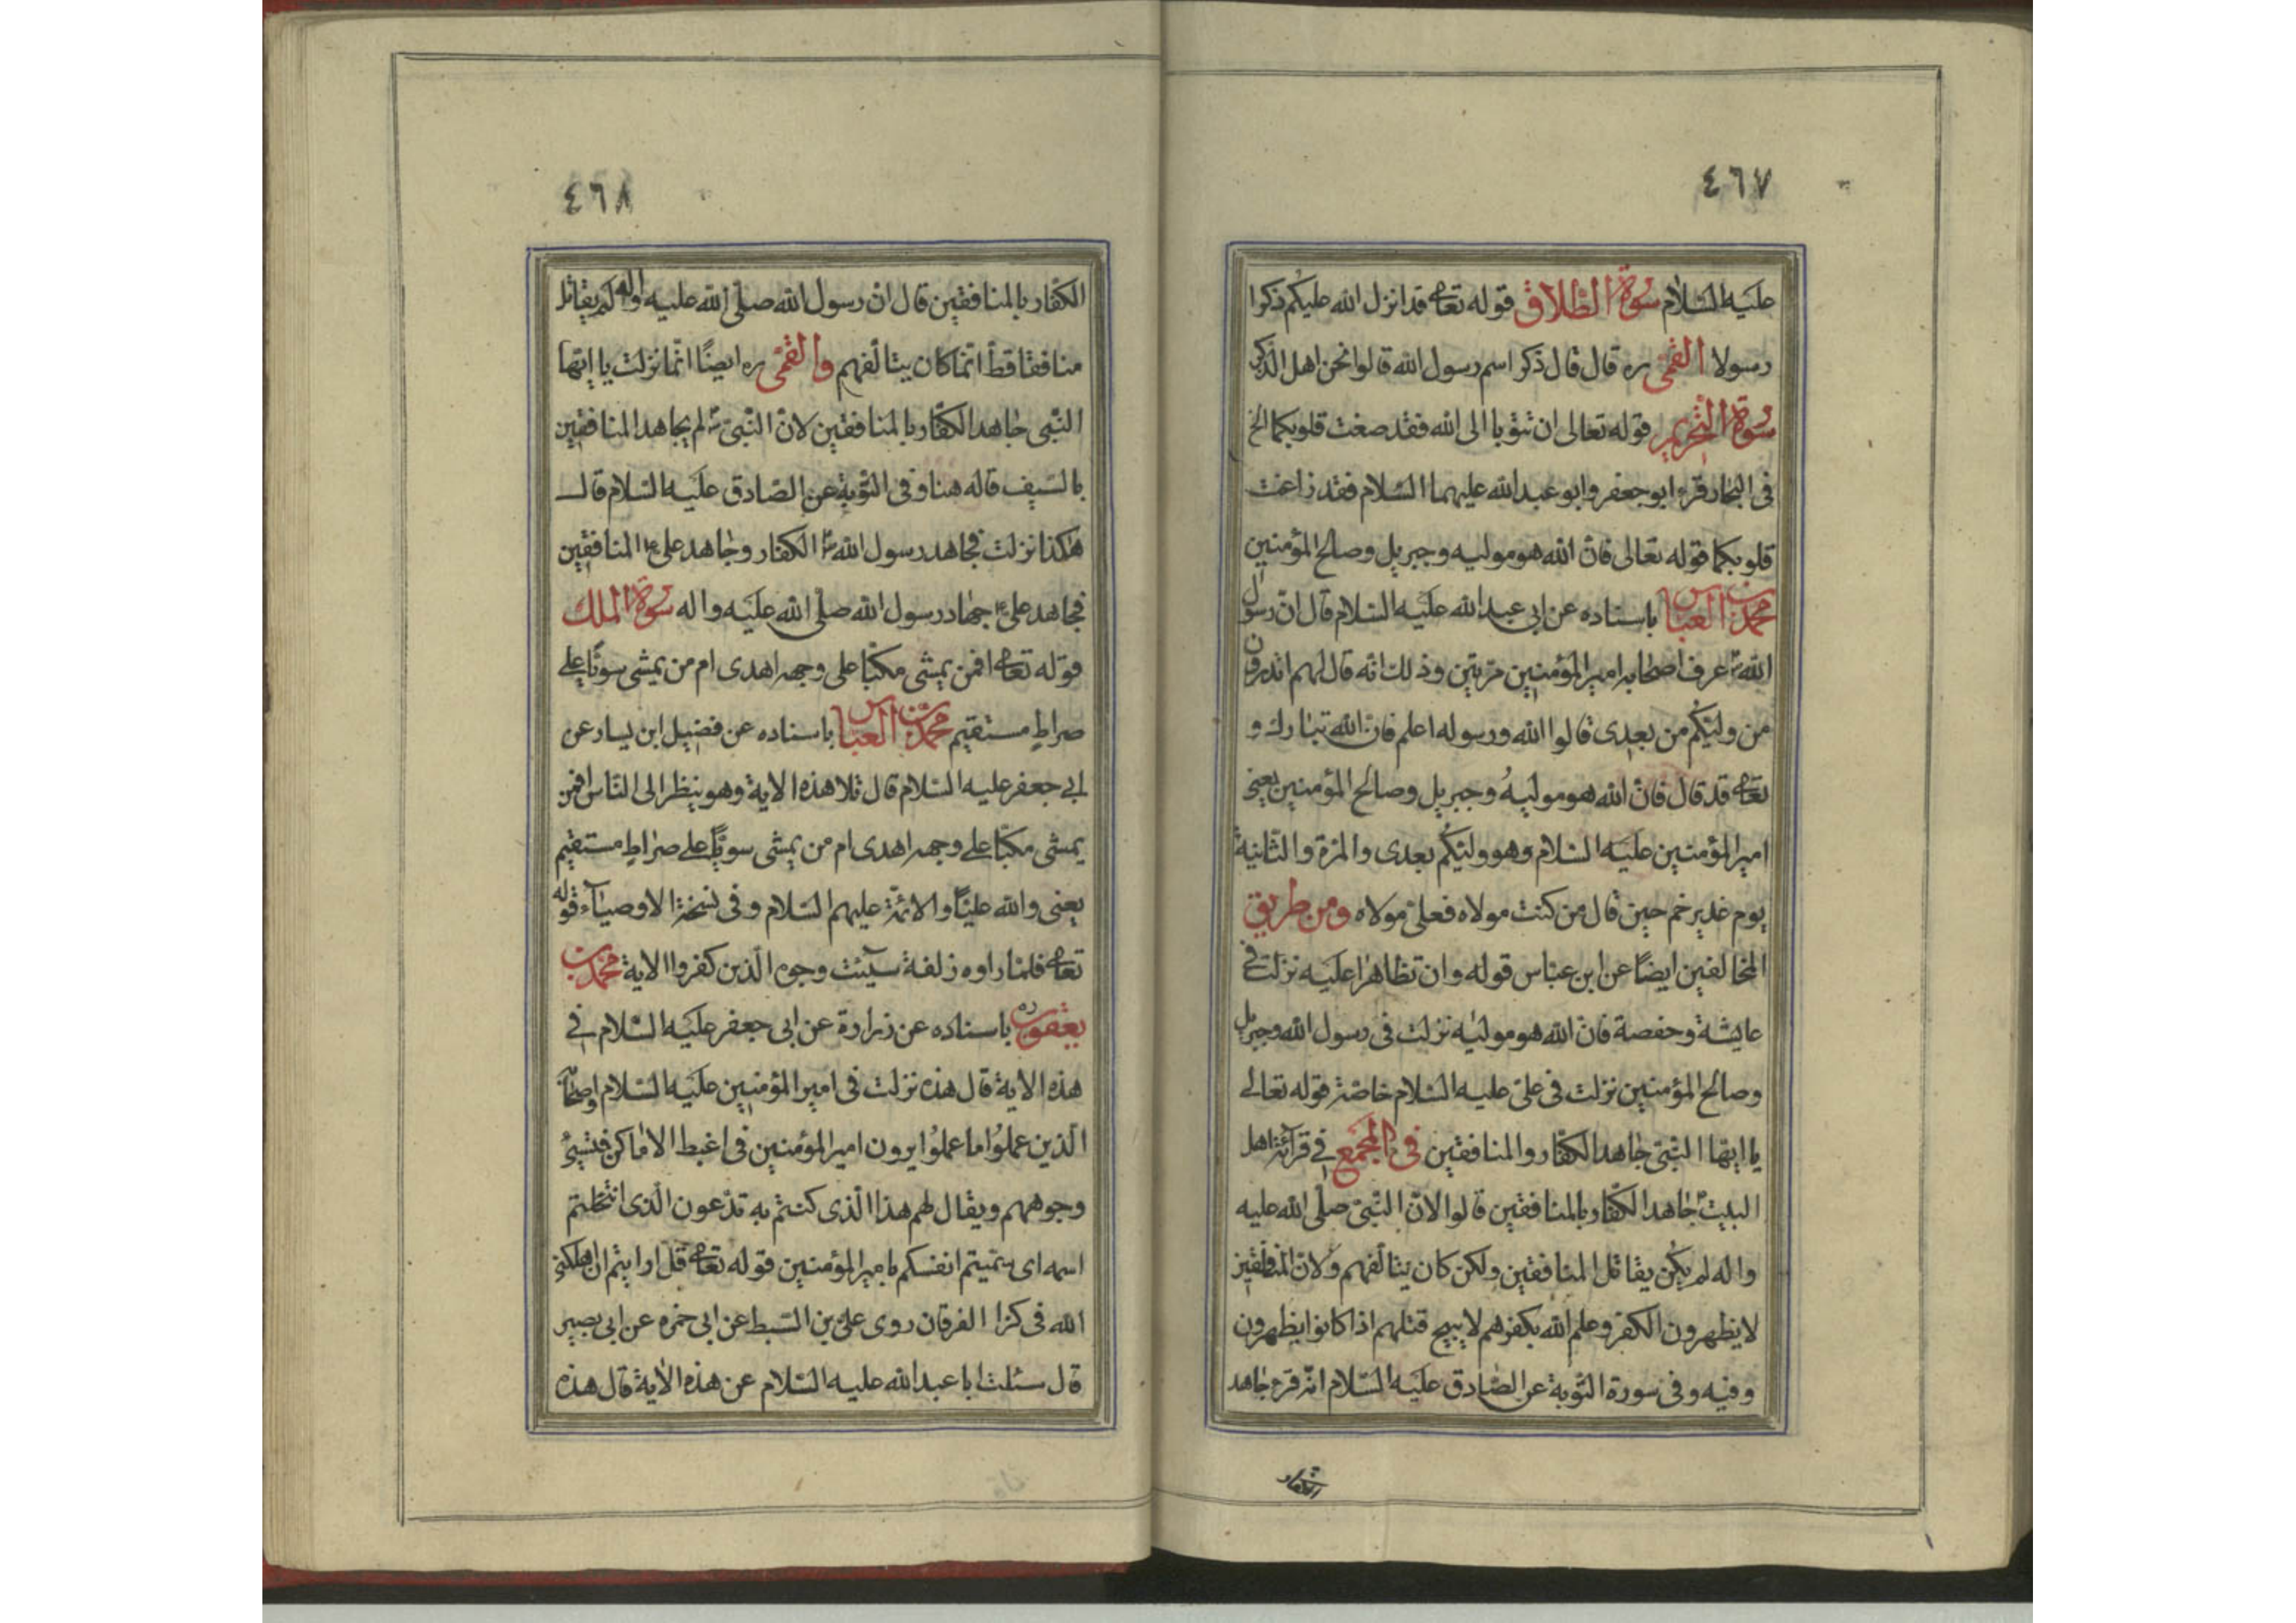 ٤٦٧
عليه السلام سورة الطلاق قوله تعالى قد انزل الله عليكم ذكرا
رسولا القمى ره قال قال ذكر اسم رسول الله قالوا نحن اهل الذكر
سورة التحريم قوله تعالى ان تتوبا الى الله فقد صغت قلوبكما الخ
فى البحار قرء ابو جعفر وابو عبد الله عليهما السلام فقد زاغت
قلوبكما قوله تعالى فان الله هو موليه وجبريل وصالح المؤمنين
محمد بن العباس باسناده عن ابى عبد الله عليه السلام قال ان رسول
الله ص عرف اصحابه امير المؤمنين مرتين وذلك انه قال لهم اتدرون
من وليكم من بعدى قالوا الله ورسوله اعلم فان الله تبارك و
تعالى قد قال فان الله هو موليه وجبريل وصالح المؤمنين يعنى
امير المؤمنين عليه السلام وهو وليكم بعدى والمرة والثانية
يوم غدير خم حين قال من كنت مولاه فعلى مولاه ومن طريق
المخالفين ايضا عن ابن عباس قوله وان تظاهرا عليه نزلت فى
عايشة وحفصة فان الله هو موليه نزلت فى رسول الله وجبريل
وصالح المؤمنين نزلت فى على عليه السلام خاصة قوله تعالى
يا ايها النبى جاهد الكفار والمنافقين فى المجمع فى قرائة اهل
البيت ع جاهد الكفار بالمنافقين قالوا لان النبى صلى الله عليه
واله لم يكن يقاتل المنافقين ولكن كان يتالفهم ولان المنافقين
لا يظهرون الكفر وعلم الله بكفرهم لا يبيح قتلهم اذا كانوا يظهرون
وفيه وفى سورة التوبة عن الصادق عليه السلام انه قرء جاهد
الكفار
٤٦٨
الكفار بالمنافقين قال ان رسول الله صلى الله عليه واله لم يقاتل
منافقا قط انما كان يتالفهم والقمى ره ايضا انما نزلت يا ايها
النبى جاهد الكفار بالمنافقين لان النبى ص لم يجاهد المنافقين
بالسيف قاله هنا وفى التوبة عن الصادق عليه السلام قال
هكذا نزلت فجاهد رسول الله ص الكفار وجاهد على ع المنافقين
فجاهد على ع جهاد رسول الله صلى الله عليه واله سورة الملك
قوله تعالى افمن يمشى مكبا على وجهه اهدى ام من يمشى سويا على
صراط مستقيم محمد بن العباس باسناده عن فضيل ابن يسار عن
ابى جعفر عليه السلام قال تلا هذه الاية وهو ينظر الى الناس افمن
يمشى مكبا على وجهه اهدى ام من يمشى سويا على صراط مستقيم
يعنى والله عليا والائمة عليهم السلام وفى نسخة الاوصياء قوله
تعالى فلما راوه زلفة سيئت وجوه الذين كفروا الاية محمد بن
يعقوب ره باسناده عن زرارة عن ابى جعفر عليه السلام فى
هذه الاية قال هذه نزلت فى امير المؤمنين عليه السلام واصحابه
الذين عملوا ما عملوا يرون امير المؤمنين فى اغبط الاماكن فتسيئ
وجوههم ويقال لهم هذا الذى كنتم به تدعون الذى انتحلتم
اسمه اى سميتم انفسكم بامير المؤمنين قوله تعالى قل ارايتم ان اهلكنى
الله فى كنزا الفرقان روى على بن السبط عن ابى حمزه عن ابى بصير
قال سئلت ابا عبد الله عليه السلام عن هذه الاية قال هذه